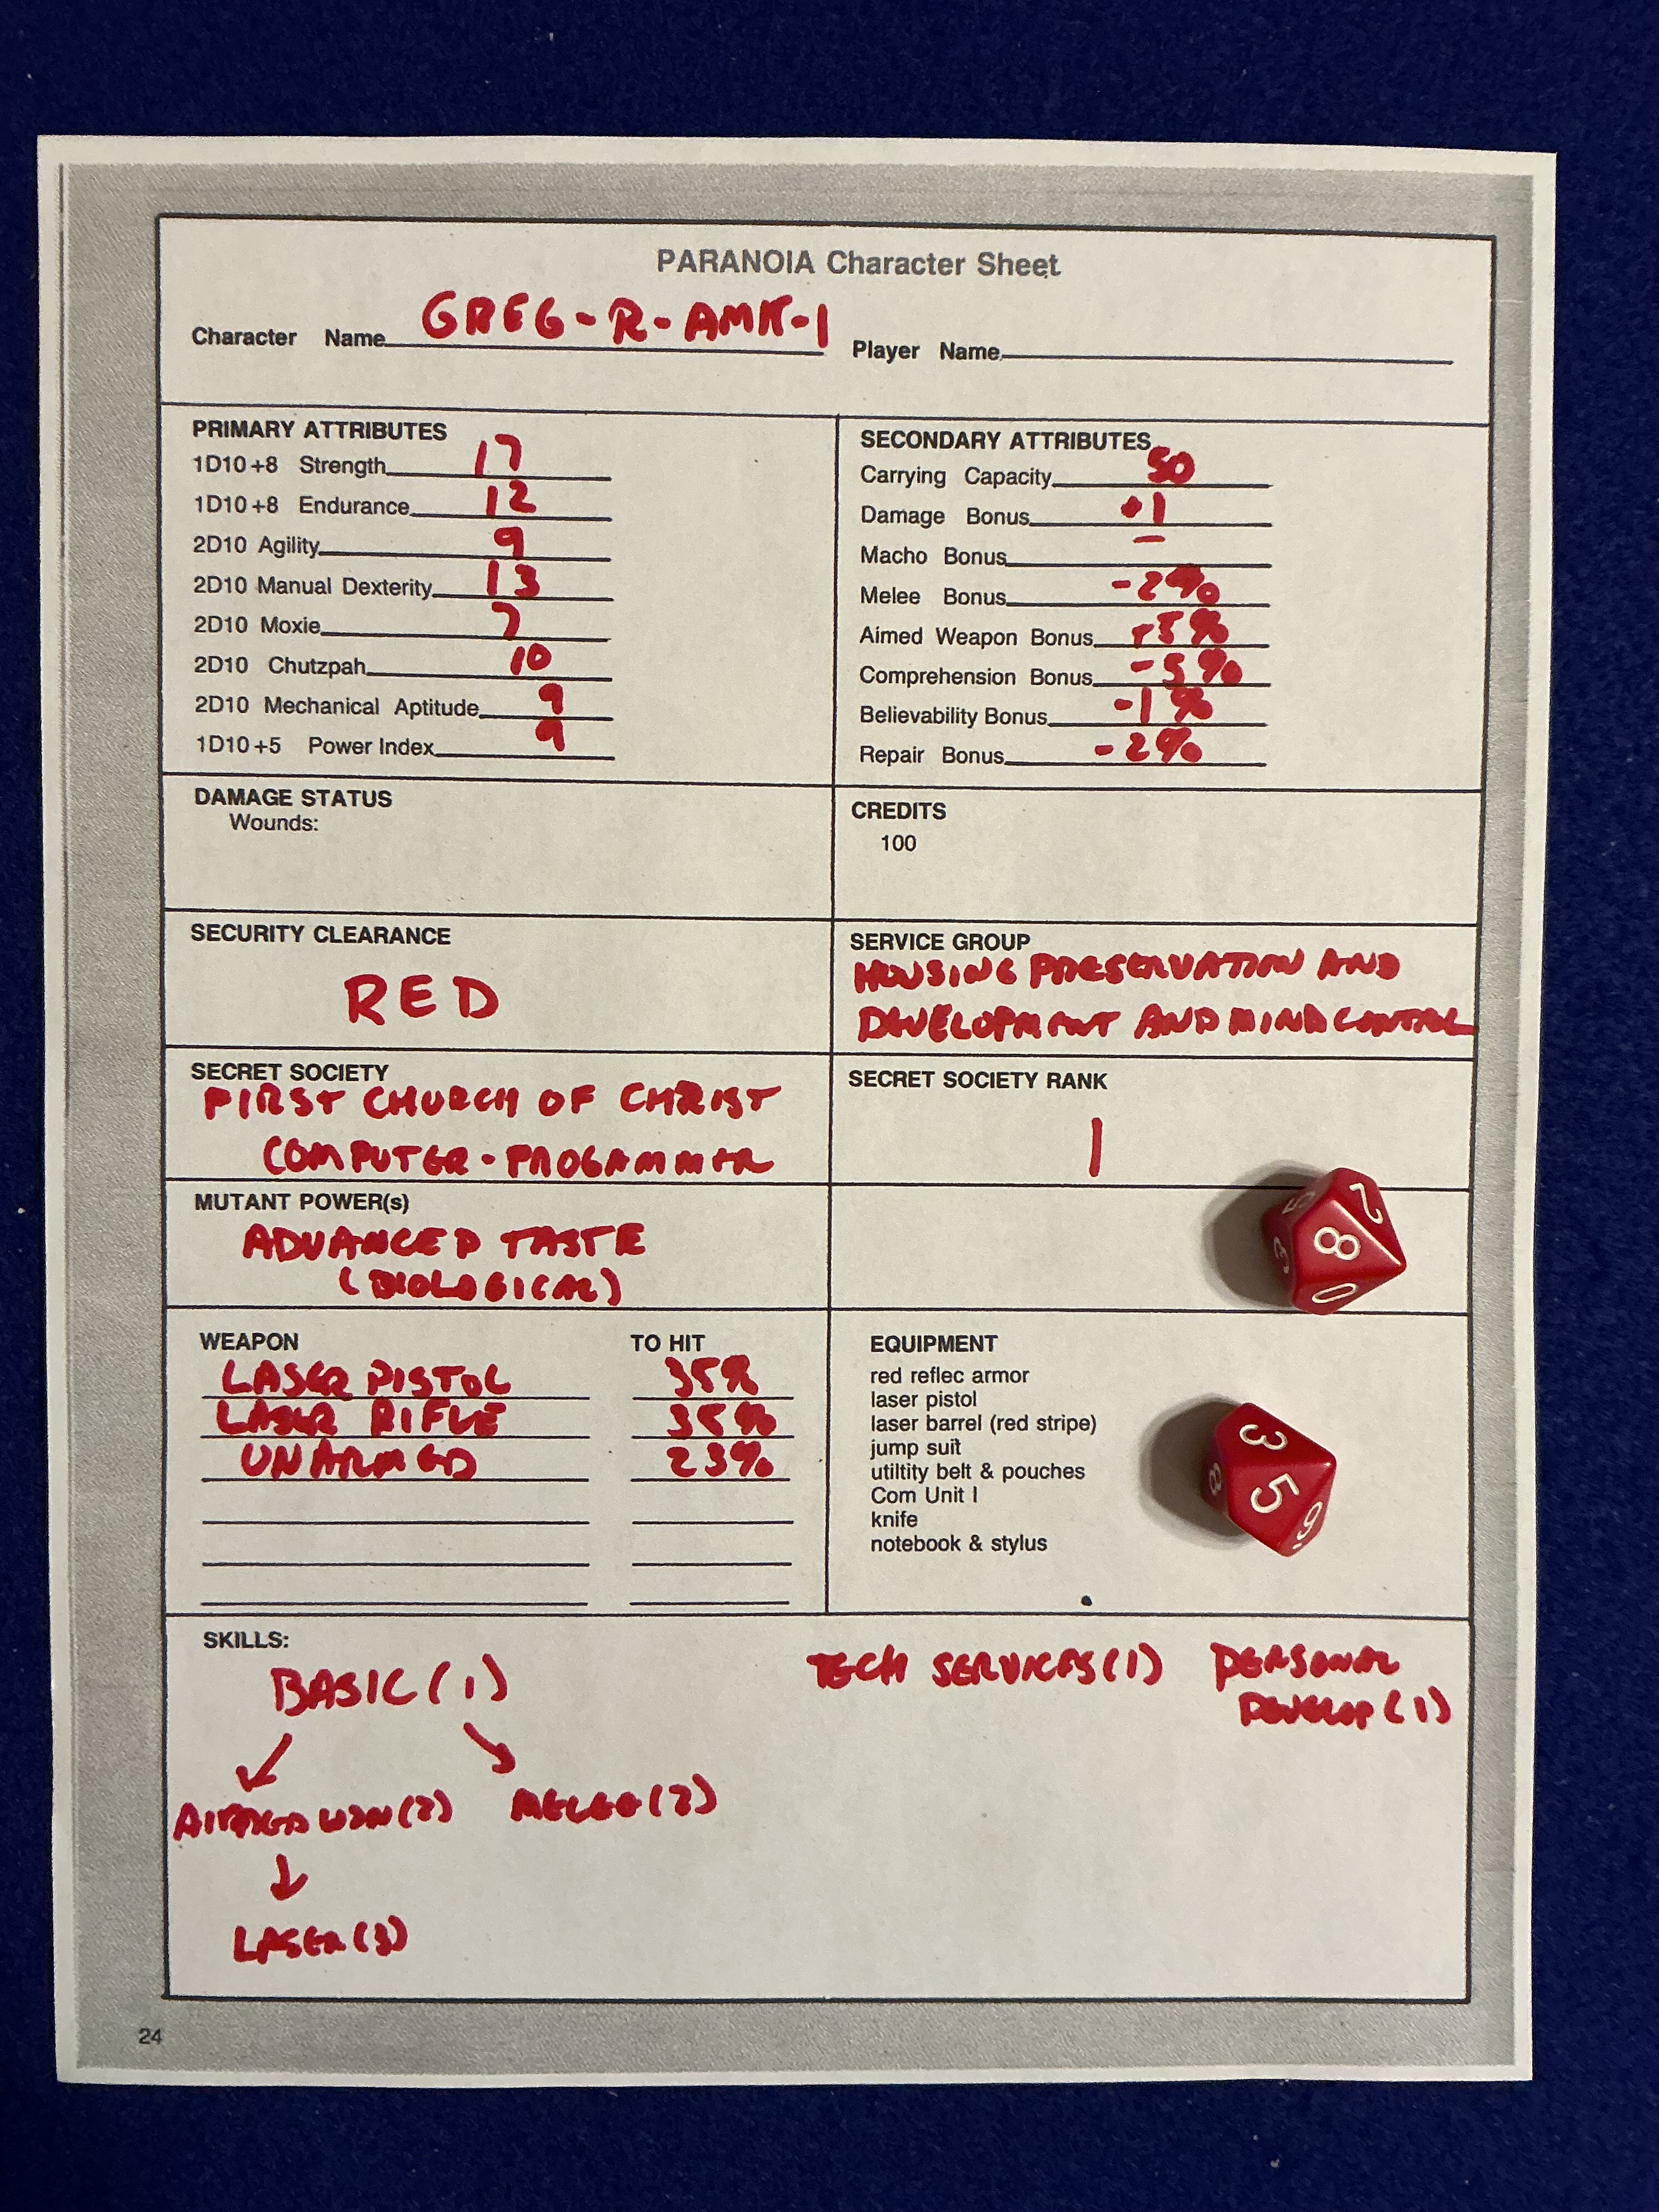 PARANOIA Character Sheet
Character Name GREG-R-AMR-1
Player Name
PRIMARY ATTRIBUTES
1D10+8 Strength 17
1D10+8 Endurance 12
2D10 Agility 9
2D10 Manual Dexterity 13
2D10 Moxie 7
2D10 Chutzpah 10
2D10 Mechanical Aptitude 9
1D10+5 Power Index 9
SECONDARY ATTRIBUTES
Carrying Capacity 50
Damage Bonus +1
Macho Bonus —
Melee Bonus -2%
Aimed Weapon Bonus +5%
Comprehension Bonus -5%
Believability Bonus -1%
Repair Bonus -2%
DAMAGE STATUS
Wounds:
CREDITS
100
SECURITY CLEARANCE
RED
SERVICE GROUP
HOUSING PRESERVATION AND
DEVELOPMENT AND MIND CONTROL
SECRET SOCIETY
FIRST CHURCH OF CHRIST
COMPUTER-PROGAMMER
SECRET SOCIETY RANK
1
MUTANT POWER(s)
ADVANCED TASTE
(BIOLOGICAL)
WEAPON TO HIT
LASER PISTOL 35%
LASER RIFLE 35%
UNARMED 23%
EQUIPMENT
red reflec armor
laser pistol
laser barrel (red stripe)
jump suit
utiltity belt & pouches
Com Unit I
knife
notebook & stylus
5 2 8 3 0
3 8 5 6.
SKILLS:
BASIC (1)
TECH SERVICES (1)
PERSONAL
DEVELOP (1)
AIMED WPN (2)
MELEE (2)
LASER (3)
24